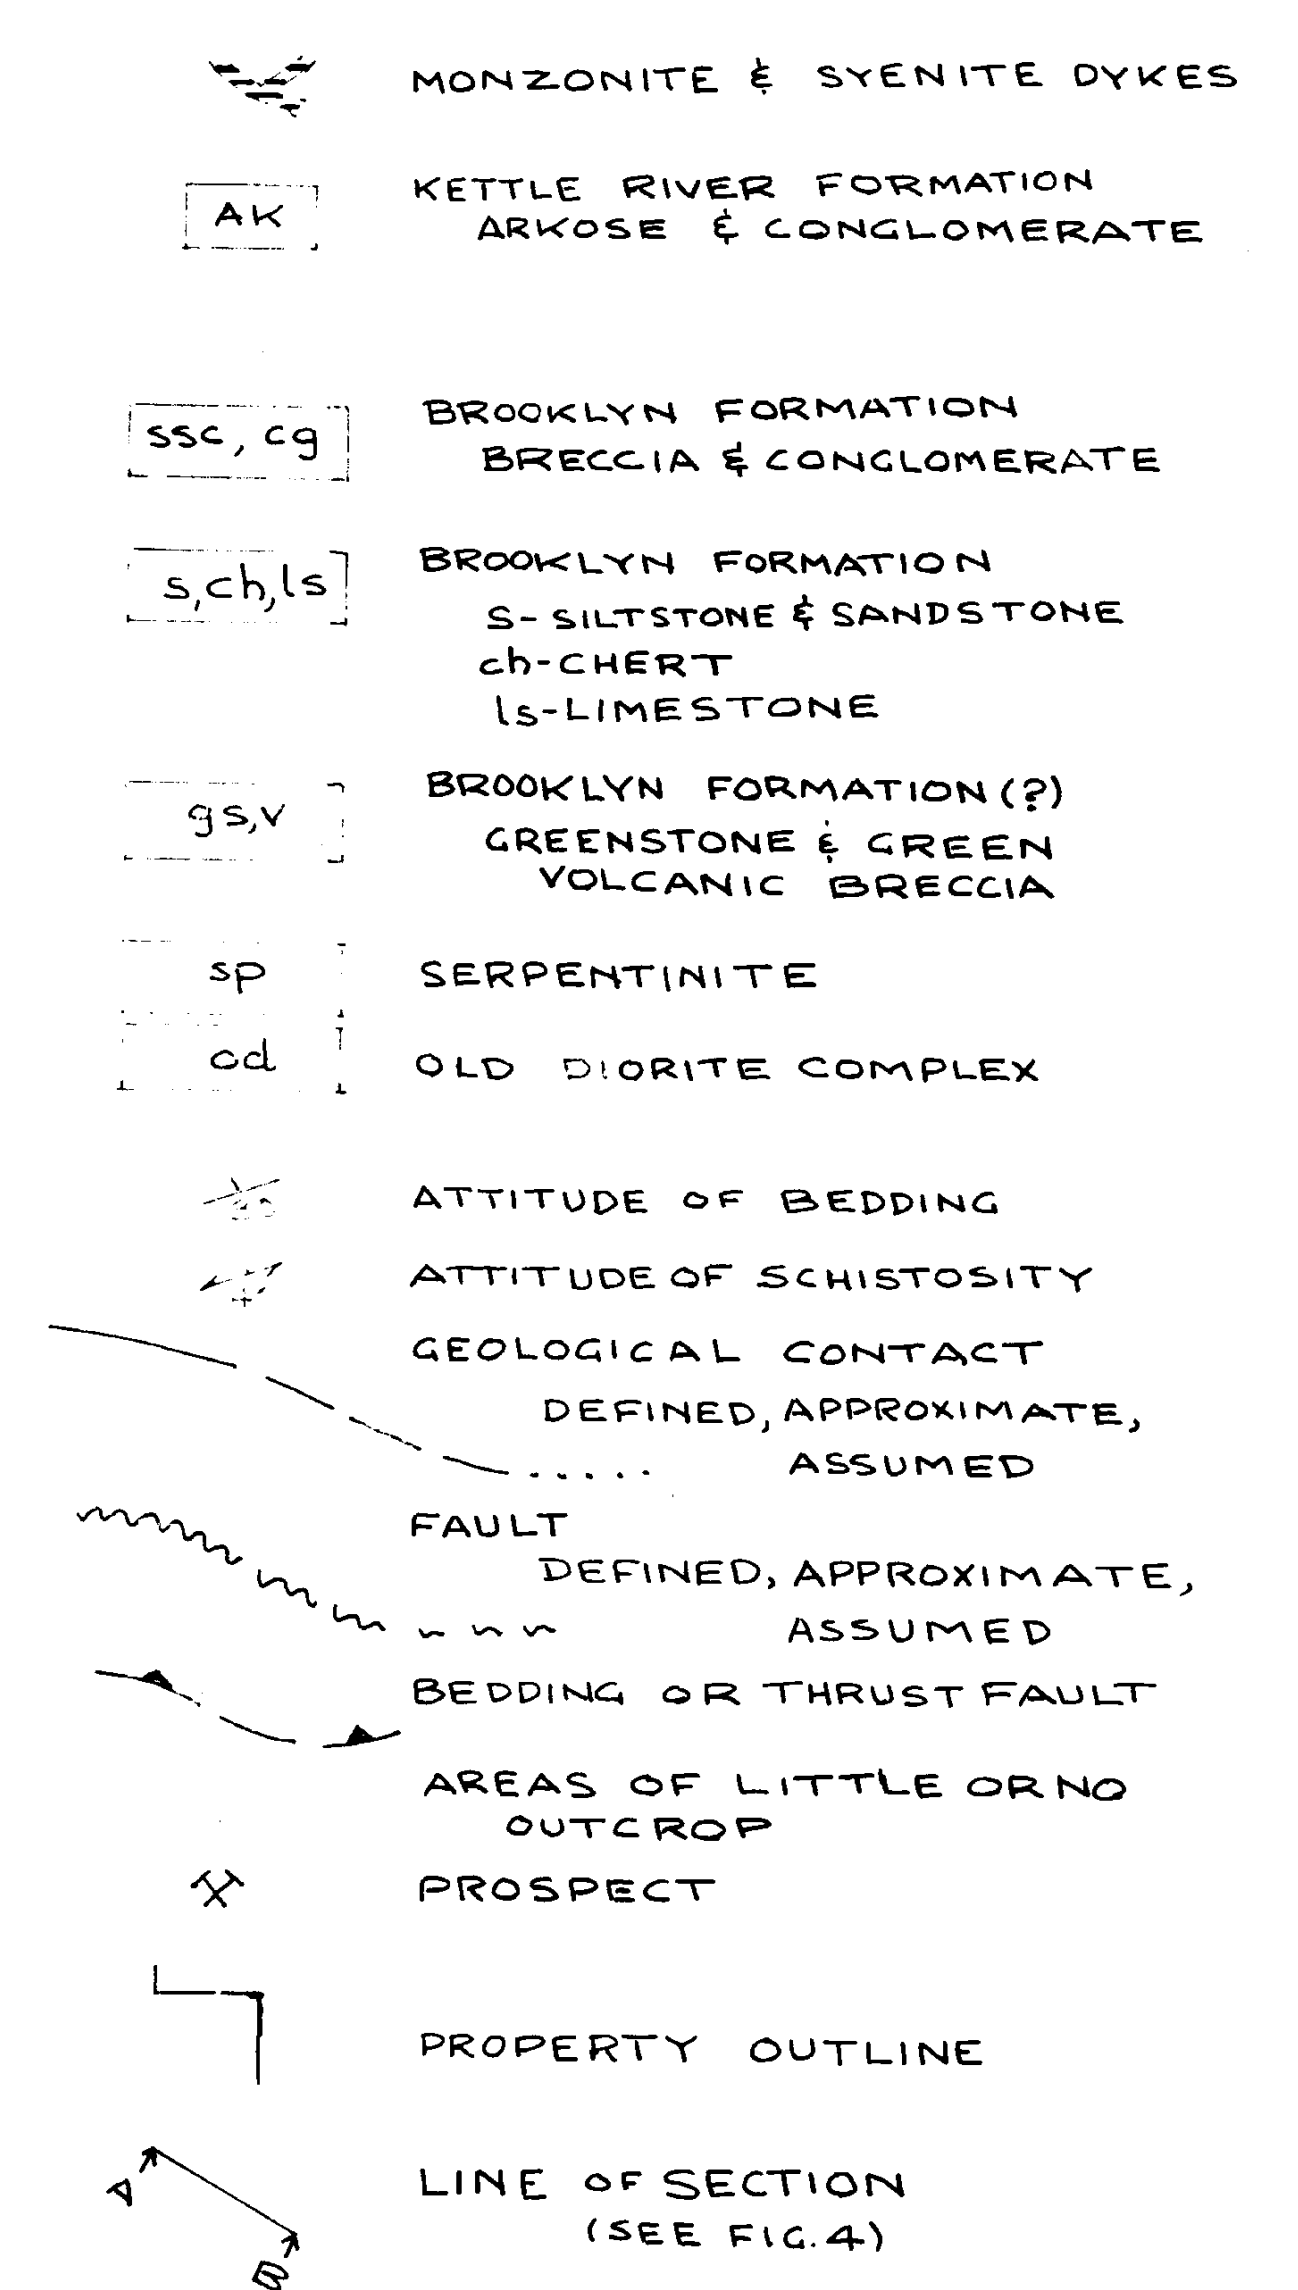 MONZONITE & SYENITE DYKES
AK
KETTLE RIVER FORMATION
ARKOSE & CONGLOMERATE
ssc, cg
BROOKLYN FORMATION
BRECCIA & CONGLOMERATE
s,ch,ls
BROOKLYN FORMATION
S-SILTSTONE & SANDSTONE
ch-CHERT
ls-LIMESTONE
gs,v
BROOKLYN FORMATION(?)
GREENSTONE & GREEN
VOLCANIC BRECCIA
sp
SERPENTINITE
od
OLD DIORITE COMPLEX
ATTITUDE OF BEDDING
ATTITUDE OF SCHISTOSITY
GEOLOGICAL CONTACT
DEFINED, APPROXIMATE,
ASSUMED
FAULT
DEFINED, APPROXIMATE,
ASSUMED
BEDDING OR THRUST FAULT
AREAS OF LITTLE OR NO
OUTCROP
PROSPECT
PROPERTY OUTLINE
A
LINE OF SECTION
(SEE FIG.4)
B